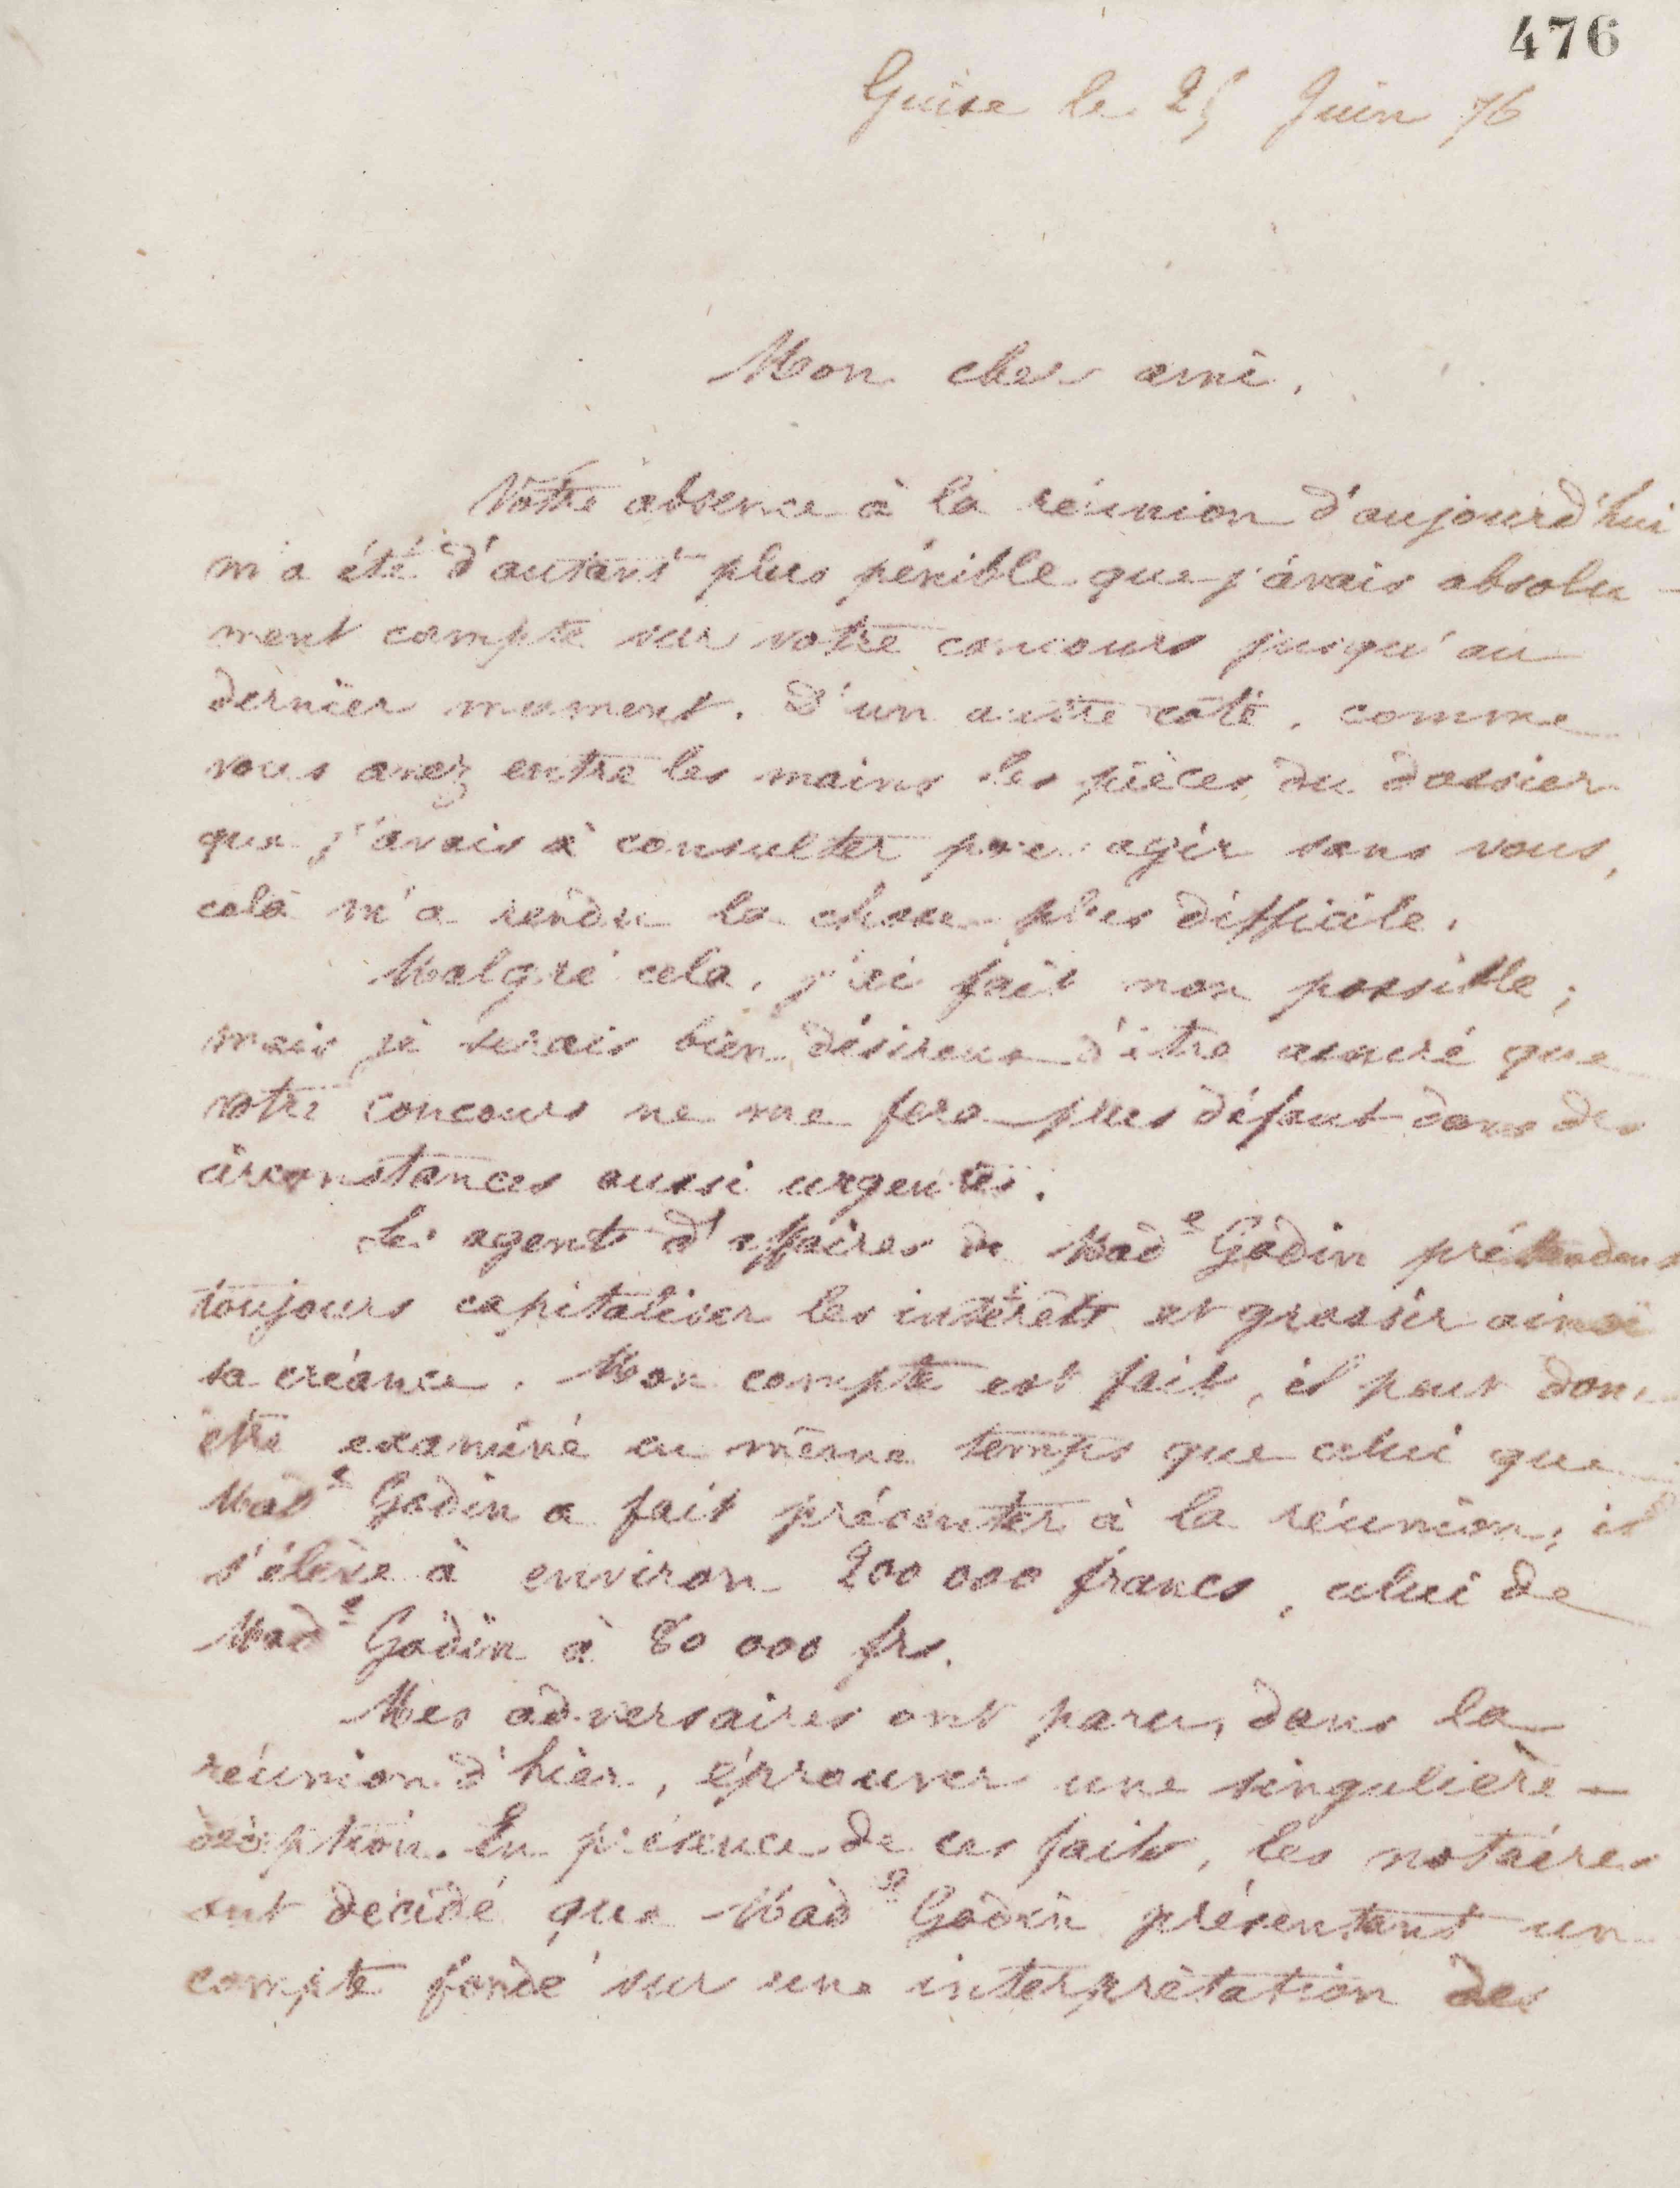 476
Guise le 25 Juin 76
Mon cher ami,
Votre absence à la réunion d'aujourd'hui
m'a été d'autant plus pénible que j'avais absolu-
ment compté sur votre concours jusqu'au
dernier moment. D'un autre côté, comme
vous avez entre les mains les pièces du dossier
que j'avais à consulter pour agir sans vous,
cela m'a rendu la chose plus difficile.
Malgré cela, j'ai fait mon possible ;
mais je serais bien désireux d'être assuré que
votre concours ne me fera plus défaut dans des
circonstances aussi urgentes.
Les agents d'affaires de Made Godin prétendent
toujours capitaliser les intérêts et grossir ainsi
sa créance. Mon compte est fait, il peut donc
être examiné en même temps que celui que
Made Godin a fait présenter à la réunion, il
s'élève à environ 200 000 francs, celui de
Made Godin à 80 000 frs.
Mes adversaires ont paru, dans la
réunion d'hier, éprouver une singulière -
déception. En présence de ces faits, les notaires
ont décidé que Made Godin présentant un
compte fondé sur une interprétation des